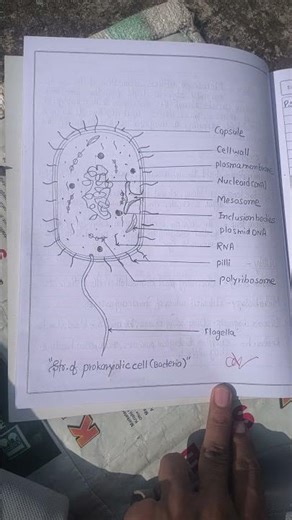 Capsule
Cell wall
plasma membrane
Nucleoid (DNA)
Mesosome
Inclusion bodies
plasmid DNA
RNA
pilli
polyribosome
Flagella
"Str. of prokaryotic cell (Bacteria)"